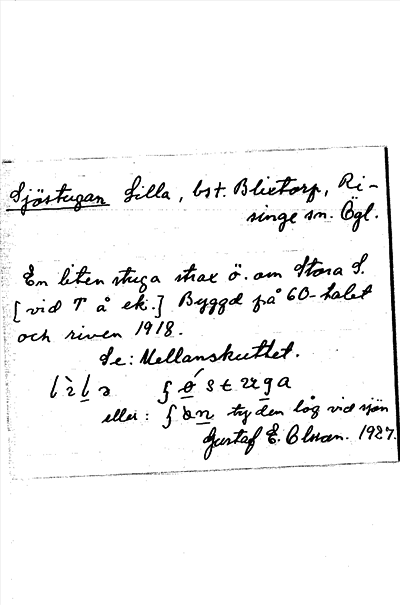 Sjöstugan Lilla, bst. Blixtorp, Ri-
singe sn. Ögl.
En liten stuga strax ö. om Stora S.
[vid T å ek.] Byggd på 60-talet
och riven 1918.
Se: Mellanskuttet.
eller: ty den låg vid sjön
Gustaf E. Olsson. 1927.